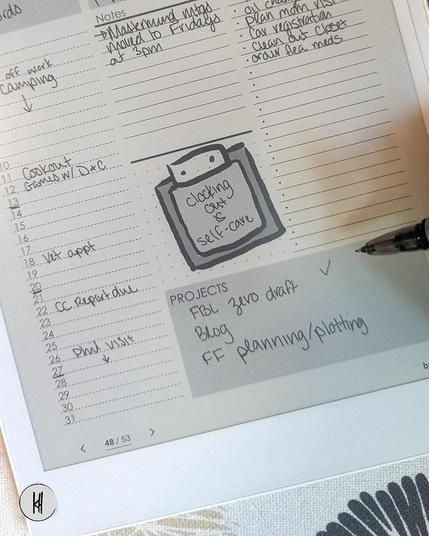 rds
Notes
Mastermind mtgs
moved to Fridays
at 3pm
oil chan
Plan mom visi
Car registration
Clean out closet
order flea meds
off work
Camping
↓
10
11 Cookout
12 Games w/ D+C
13
14
15
16
17
18 Vet appt
19
20
21
22 CC Report due
23
24
25
26 Phil visit
27 ↓
28
29
30
31
clocking
out
is
self-care
PROJECTS
FBL zero draft ✓
Blog
FF planning/plotting
< 48 / 53 >
b
KH